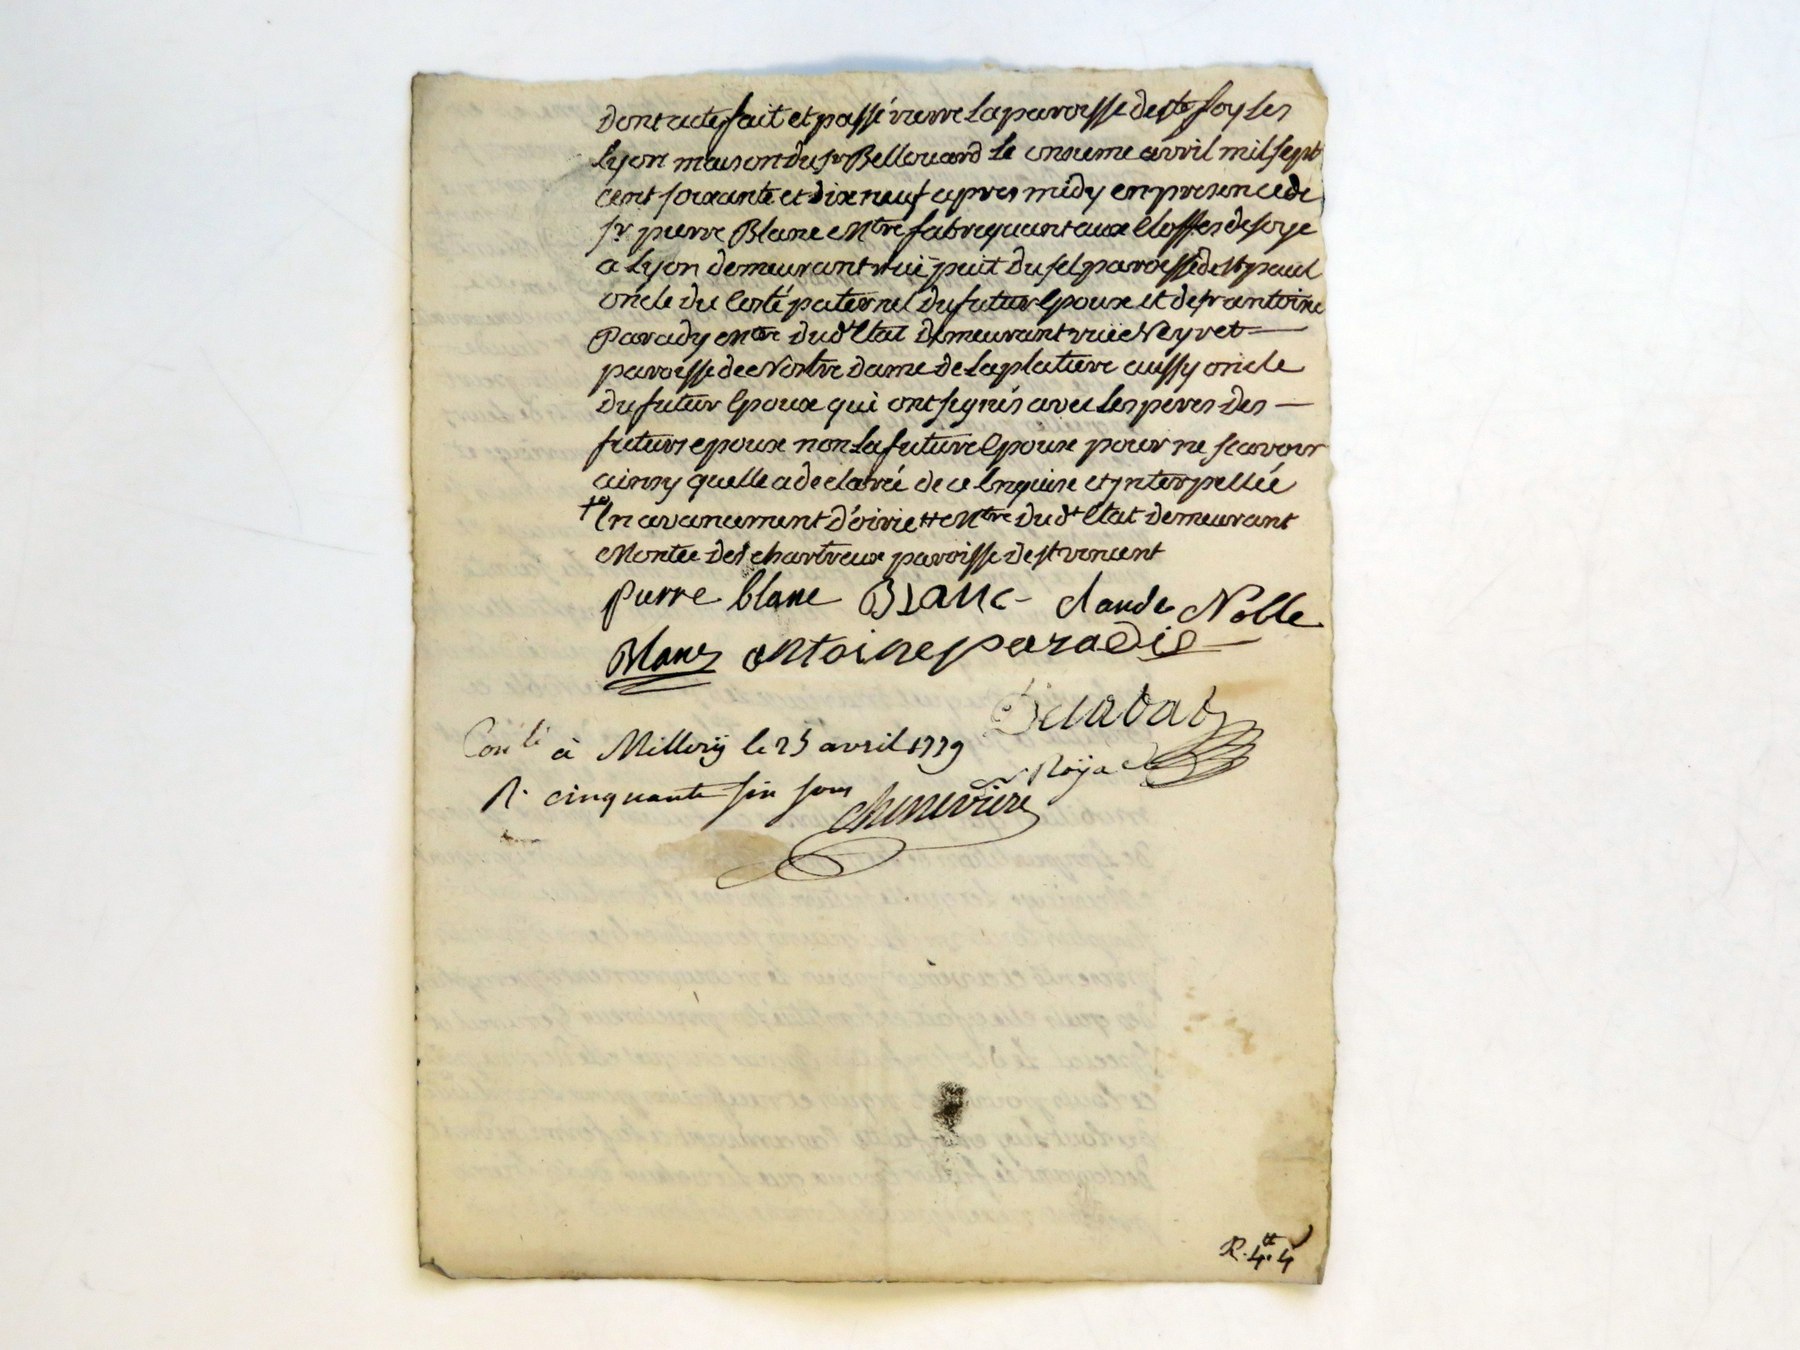 dont acte fait et passé riere la paroisse de ste foy les
Lyon maison du sr Bellouard le onzieme avril mil sept
cent soixante et dix neuf apres midy en presence de
sr pierre Blanc Mtre fabriquant aux Etoffes de soye
a Lyon demeurant ruë puit du sel paroisse de st paul
oncle du Costé paternel du futur Epoux et de sr antoine
Parady Mtre dud. Etat demeurant ruë Neyret
paroisse de Nostre dame de la platiere aussy oncle
du futur Epoux qui ont signés avec les peres des
futurs epoux non la future Epouse pour ne scavoir
ainsy quelle a declarée de ce Enquise et ynterpellée
+ En avancement d'oirie ++ Mtre dud. Etat demeurant
Montée des chartreux paroisse de st vincent
pierre blanc Blanc claude Noble
Blanc antoine paradis
Delabat
Conlé à Millery le 25 avril 1779
R. cinquante six sous
Roya
chenevière
R. 4tt. 4